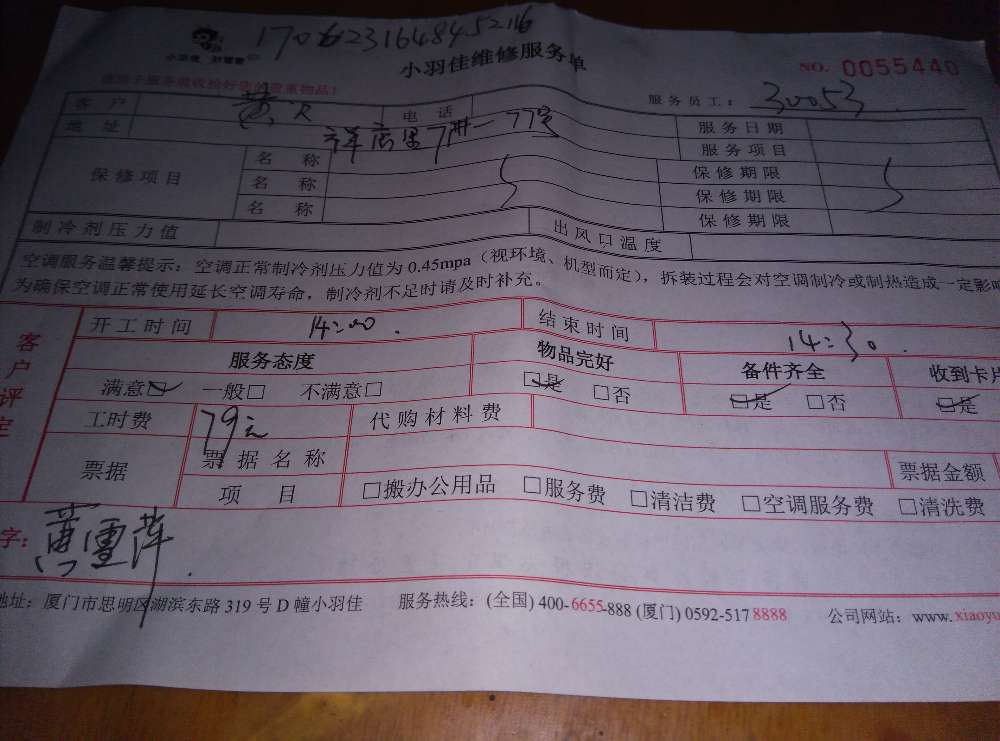 17062316484845216
小羽佳维修服务单
NO. 0055440
服务员工： 30053
客 户 电 话
地 址 祥店里7#-一77室 服务日期
服务项目
保修项目 名 称 保修期限
名 称 保修期限
名 称 保修期限
制冷剂压力值 出风口温度
空调服务温馨提示：空调正常制冷剂压力值为 0.45mpa（视环境、机型而定），拆装过程会对空调制冷或制热造成一定影
为确保空调正常使用延长空调寿命，制冷剂不足时请及时补充。
客户评定
开工时间 14:00. 结束时间 14:30.
服务态度 物品完好 备件齐全 收到卡片
满意☑ 一般□ 不满意□ ☑是 □否 ☑是 □否 ☑是
工时费 79元 代购材料费
票据 票据名称 票据金额
项 目 □搬办公用品 □服务费 □清洁费 □空调服务费 □清洗费
字：黄雪萍.
地址：厦门市思明区湖滨东路 319 号 D 幢小羽佳 服务热线：(全国) 400-6655-888 (厦门) 0592-5178888 公司网站：www.xiaoyu